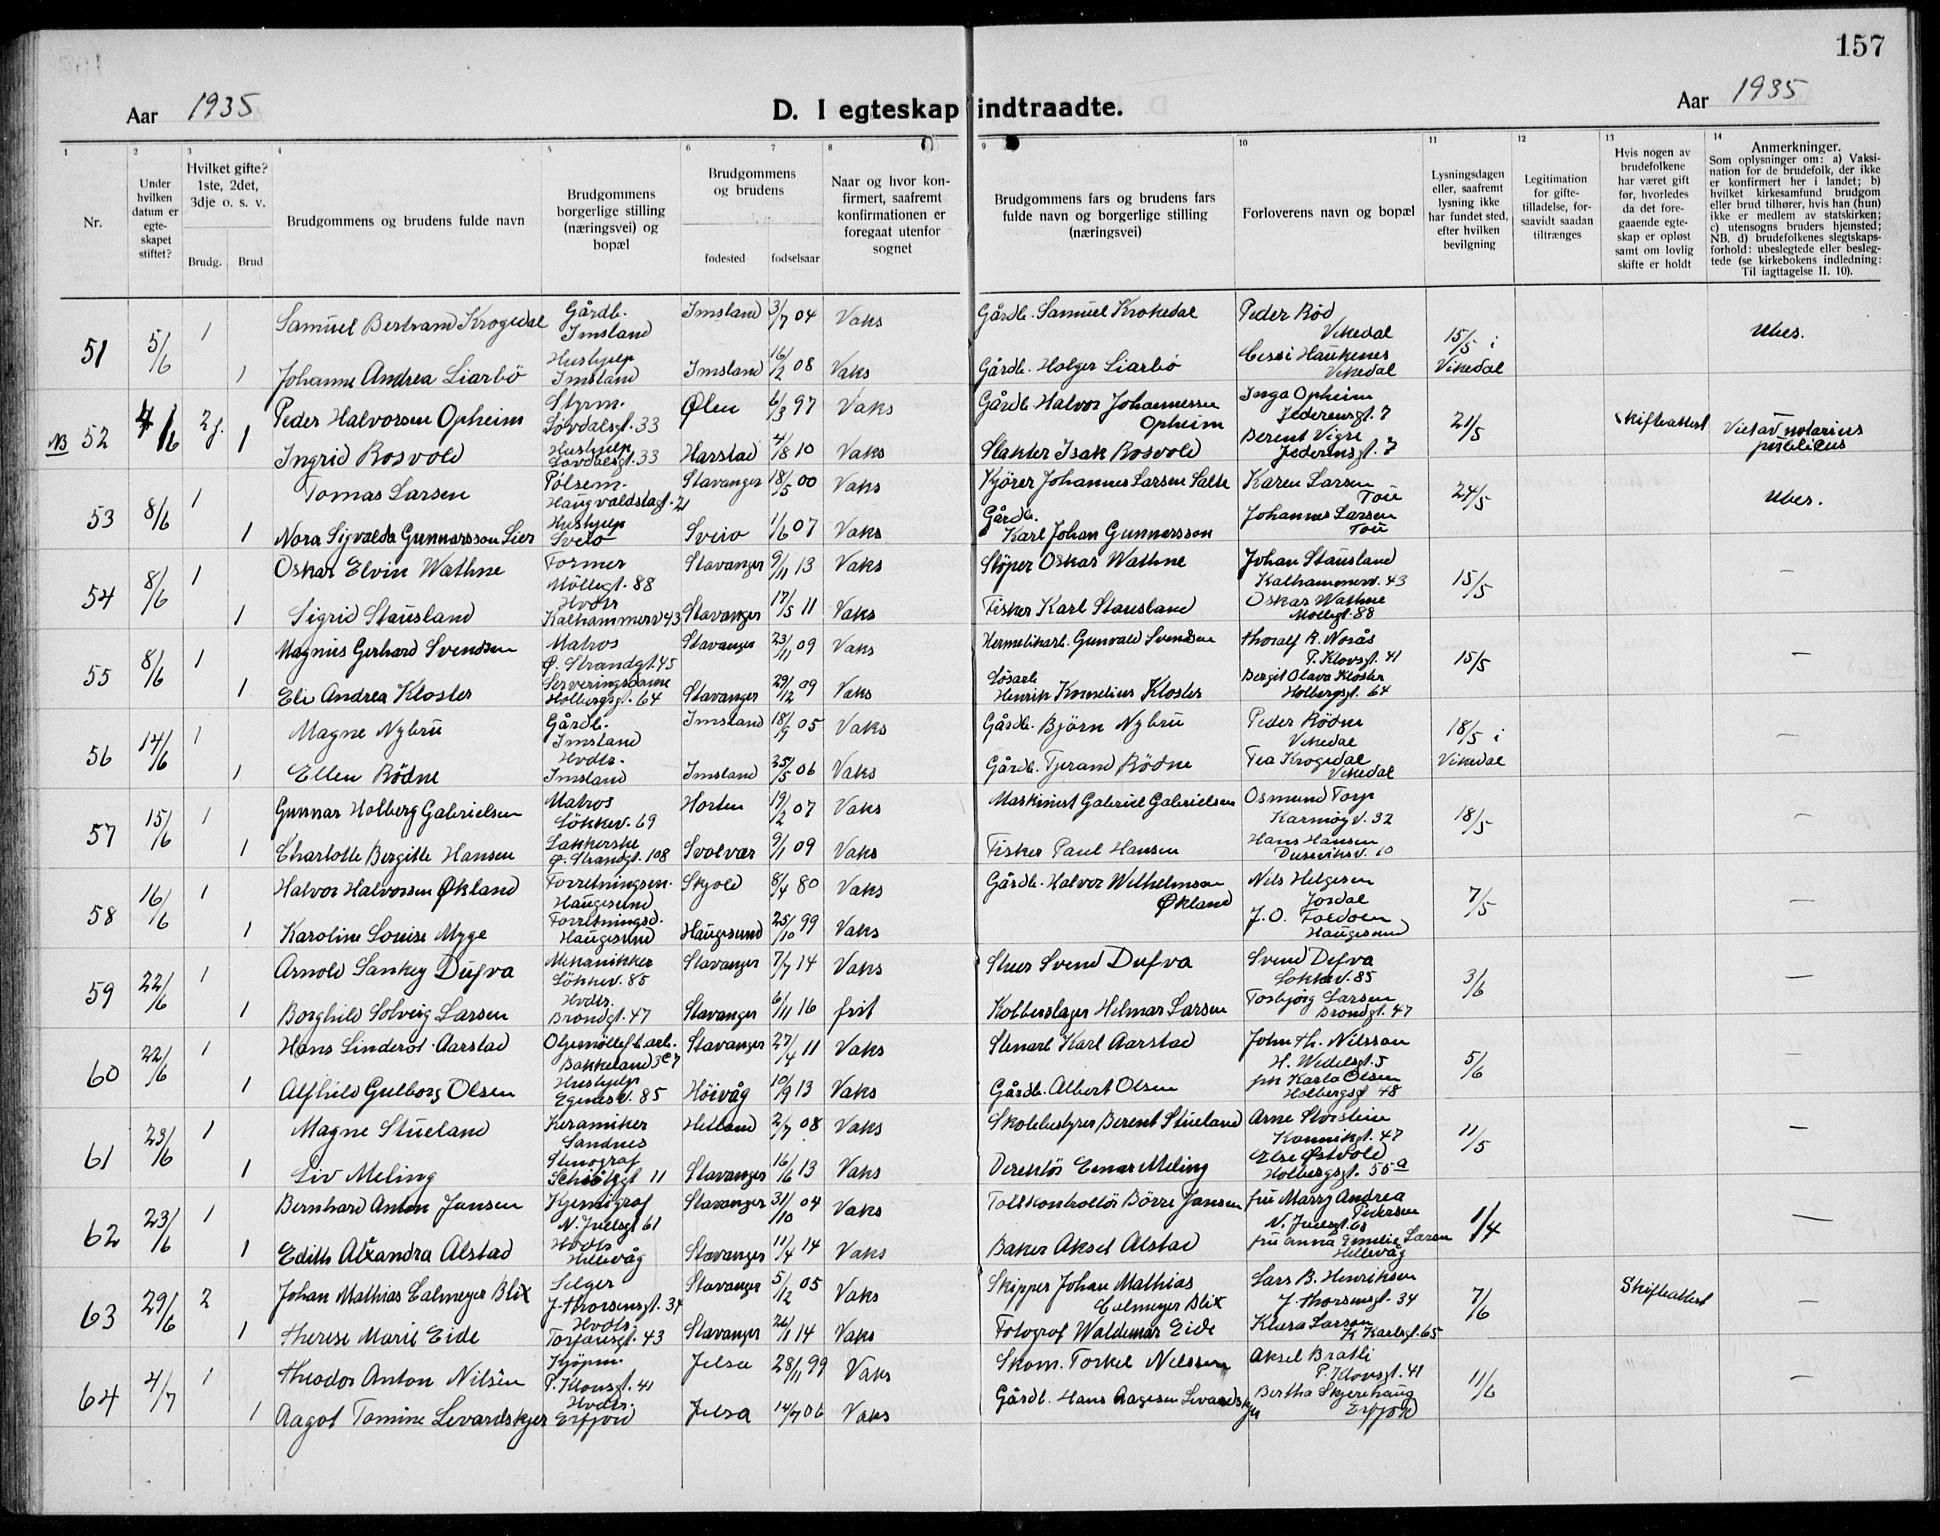 157
Aar 1935
D. I egteskap indtraadte.
Aar 1935
1 2 3 4 5 6 7 8 9 10 11 12 13 14
Nr.
Under hvilken datum er egte-skapet stiftet?
Hvilket gifte? 1ste, 2det, 3dje o. s. v.
Brudg. Brud
Brudgommens og brudens fulde navn
Brudgommens borgerlige stilling (næringsvei) og bopæl
Brudgommens og brudens
fødested fødselsaar
Naar og hvor kon-firmert, saafremt konfirmationen er foregaat utenfor sognet
Brudgommens fars og brudens fars fulde navn og borgerlige stilling (næringsvei)
Forloverens navn og bopæl
Lysningsdagen eller, saafremt lysning ikke har fundet sted, efter hvilken bevilgning
Legitimation for gifte-tilladelse, for-saavidt saadan tiltrænges
Hvis nogen av brudefolkene har været gift før, hvorledes da det fore-gaaende egte-skap er opløst samt om lovlig skifte er holdt
Anmerkninger.
Som oplysninger om: a) Vaksi-nation for de brudefolk, der ikke er konfirmert her i landet; b) hvilket kirkesamfund brudgom eller brud tilhører, hvis han (hun) ikke er medlem av statskirken; c) utensogns bruders hjemsted; NB. d) brudefolkenes slegtskaps-forhold: ubeslegtede eller besleg-tede (se kirkebokens indledning: Til iagttagelse II. 10).
51 5/6 1 Samuel Bertrand Krogedal Gårdb. Imsland Imsland 3/7 04 Vaks Gårdb. Samuel Krokedal Peder Rød Vikedal 15/5 i Vikedal Ubes.
1 Johanne Andrea Liarbö Hushjelp Imsland Imsland 16/2 08 Vaks Gårdb. Holger Liarbö Haukenes Vikedal
NB 52 4/6 2 g. Peder Halvorsen Opheim Styrm. Lövdalsgt. 33 Ølen 6/3 97 Vaks Gårdb. Halvor Johannessen Opheim Inga Opheim Jederensgt. 7 21/5 Skifteattest Viet av notarius publicus
1 Ingrid Rosvold Hushjelp Lövdalsgt. 33 Harstad 4/8 10 Vaks Slakter Isak Rosvold Berent Vigre Jederensgt. 7
53 8/6 1 Tomas Larsen Pölsem. Haugvaldstadgt. 21 Stavanger 18/5 00 Vaks Kjörer Johannes Larsen Salte Karen Larsen Tou 24/5 Ubes.
1 Nora Sigvalda Gunnarsson Lier Hushjelp Sveio Sveio 1/6 07 Vaks Gårdb. Karl Johan Gunnarsson Johannes Larsen Tou
54 8/6 1 Oskar Elvin Wathne Former Möllegt. 88 Stavanger 9/11 13 Vaks Stöper Oskar Wathne Johan Stausland Kalhammerv. 43 15/5 –
1 Sigrid Stausland Hvdtr Kalhammerv 43 Stavanger 17/5 11 Vaks Fisker Karl Stausland Oskar Wathne Möllegt. 88
55 8/6 1 Magnus Gerhard Svendsen Matros Ø. Strandgt. 45 Stavanger 23/11 09 Vaks Hermetikarb. Gunvald Svendsen Thoralf R. Norås P. Klovsgt. 41 15/5 –
1 Eli Andrea Kloster Serveringsdame Holbergsgt. 64 Stavanger 29/12 09 Vaks Lösarb. Henrik Kornelius Kloster Bergit Olava Kloster Holbergsgt. 64
56 14/6 1 Magne Nybru Gårdb. Imsland Imsland 18/9 05 Vaks Gårdb. Björn Nybru Peder Rödne Vikedal 18/5 i Vikedal –
1 Ellen Rödne Hvdtr. Imsland Imsland 25/5 06 Vaks Gårdb. Tjerand Rödne Tea Krogedal Vikedal
57 15/6 1 Gunnar Holberg Gabrielsen Matros Lökkev. 69 Horten 19/2 07 Vaks Maskinist Gabriel Gabrielsen Osmund Torp Karmöyv. 32 18/5 –
1 Charlotte Bergitte Hansen Lakkerske Ø. Strandgt. 108 Svolvær 9/1 09 Vaks Fisker Paul Hansen Hans Hansen Duseviksv. 10
58 16/6 1 Halvor Halvorsen Økland Forretningsm. Haugesund Skjold 8/4 80 Vaks Gårdb. Halvor Wilhelmson Økland Nils Helgesen Jordal 7/5 –
1 Karoline Louise Myge Forretningsd. Haugesund Haugesund 25/10 99 Vaks J. O. Haugesund
59 22/6 1 Arnold Sankey Dufva Mekanikker Lökkev. 85 Stavanger 7/7 14 Vaks Svend Dufva Svend Dufva Lökkev. 85 3/6 –
1 Borghild Solveig Larsen Hvdtr. Brøndgt. 47 Stavanger 6/11 16 frit Kobberslager Helmar Larsen Torbjörg Larsen Brøndgt. 47
60 22/6 1 Hans Linderot Aarstad Oljemöllef. arb. Bakkeland 3 c 7 Stavanger 27/4 11 Vaks Stenarb Karl Aarstad John Th. Nilsson H. Wedelsgt. 5 5/6 –
1 Alfhild Gulborg Olsen Hushjelp Egenesv. 85 Höivåg 10/9 13 Vaks Gårdb. Albert Olsen frk Karla Olsen Holbergsgt 48
61 23/6 1 Magne Stueland Keramiker Sandnes Hetland 2/7 08 Vaks Skolebestyrer Berent Stueland Arne Storstein Kannikgt. 47 11/5 –
1 Liv Meling Stenograf Schiötzgt 11 Stavanger 16/6 13 Vaks Direktör Einar Meling Else Østvold Holbergsgt. 55 a
62 23/6 1 Bernhard Anton Jansen Kjemigraf N. Juelsgt 61 Stavanger 31/10 04 Vaks Tollkontrollör Börre Jansen fru Marry Andrea Pedersen N. Juelsgt. 61 1/4 –
1 Edith Alexandra Alstad Hvdtr Hillevåg Stavanger 11/4 14 Vaks Baker Aksel Alstad fru Anna Emelie Larsen Hillevåg
63 29/6 2 Johan Mathias Calmeyer Blix Selger J. Thorsensgt. 34 Stavanger 5/12 05 Vaks Skipper Johan Mathias Calmeyer Blix Lars B. Henriksen J. Thorsensgt. 34 7/6 Skifteattest –
1 Therese Marie Eide Hvdtr. Torfæusgt. 43 Stavanger 26/1 14 Vaks Fotograf Waldemar Eide Klara Larsen K Karlsgt. 65
64 4/7 1 Theodor Anton Nilsen Kjöpm. P. Klovsgt. 41 Jelsa 28/11 99 Vaks Skom. Torkel Nilssen Aksel Bratli P. Klovsgt. 41 11/6 –
1 Aagot Tomine Levardskjer Hvdtr. Erfjord Jelsa 14/7 06 Vaks Gårdb. Hans Aagesen Levardskjer Bertha Skjerehaug Erfjord